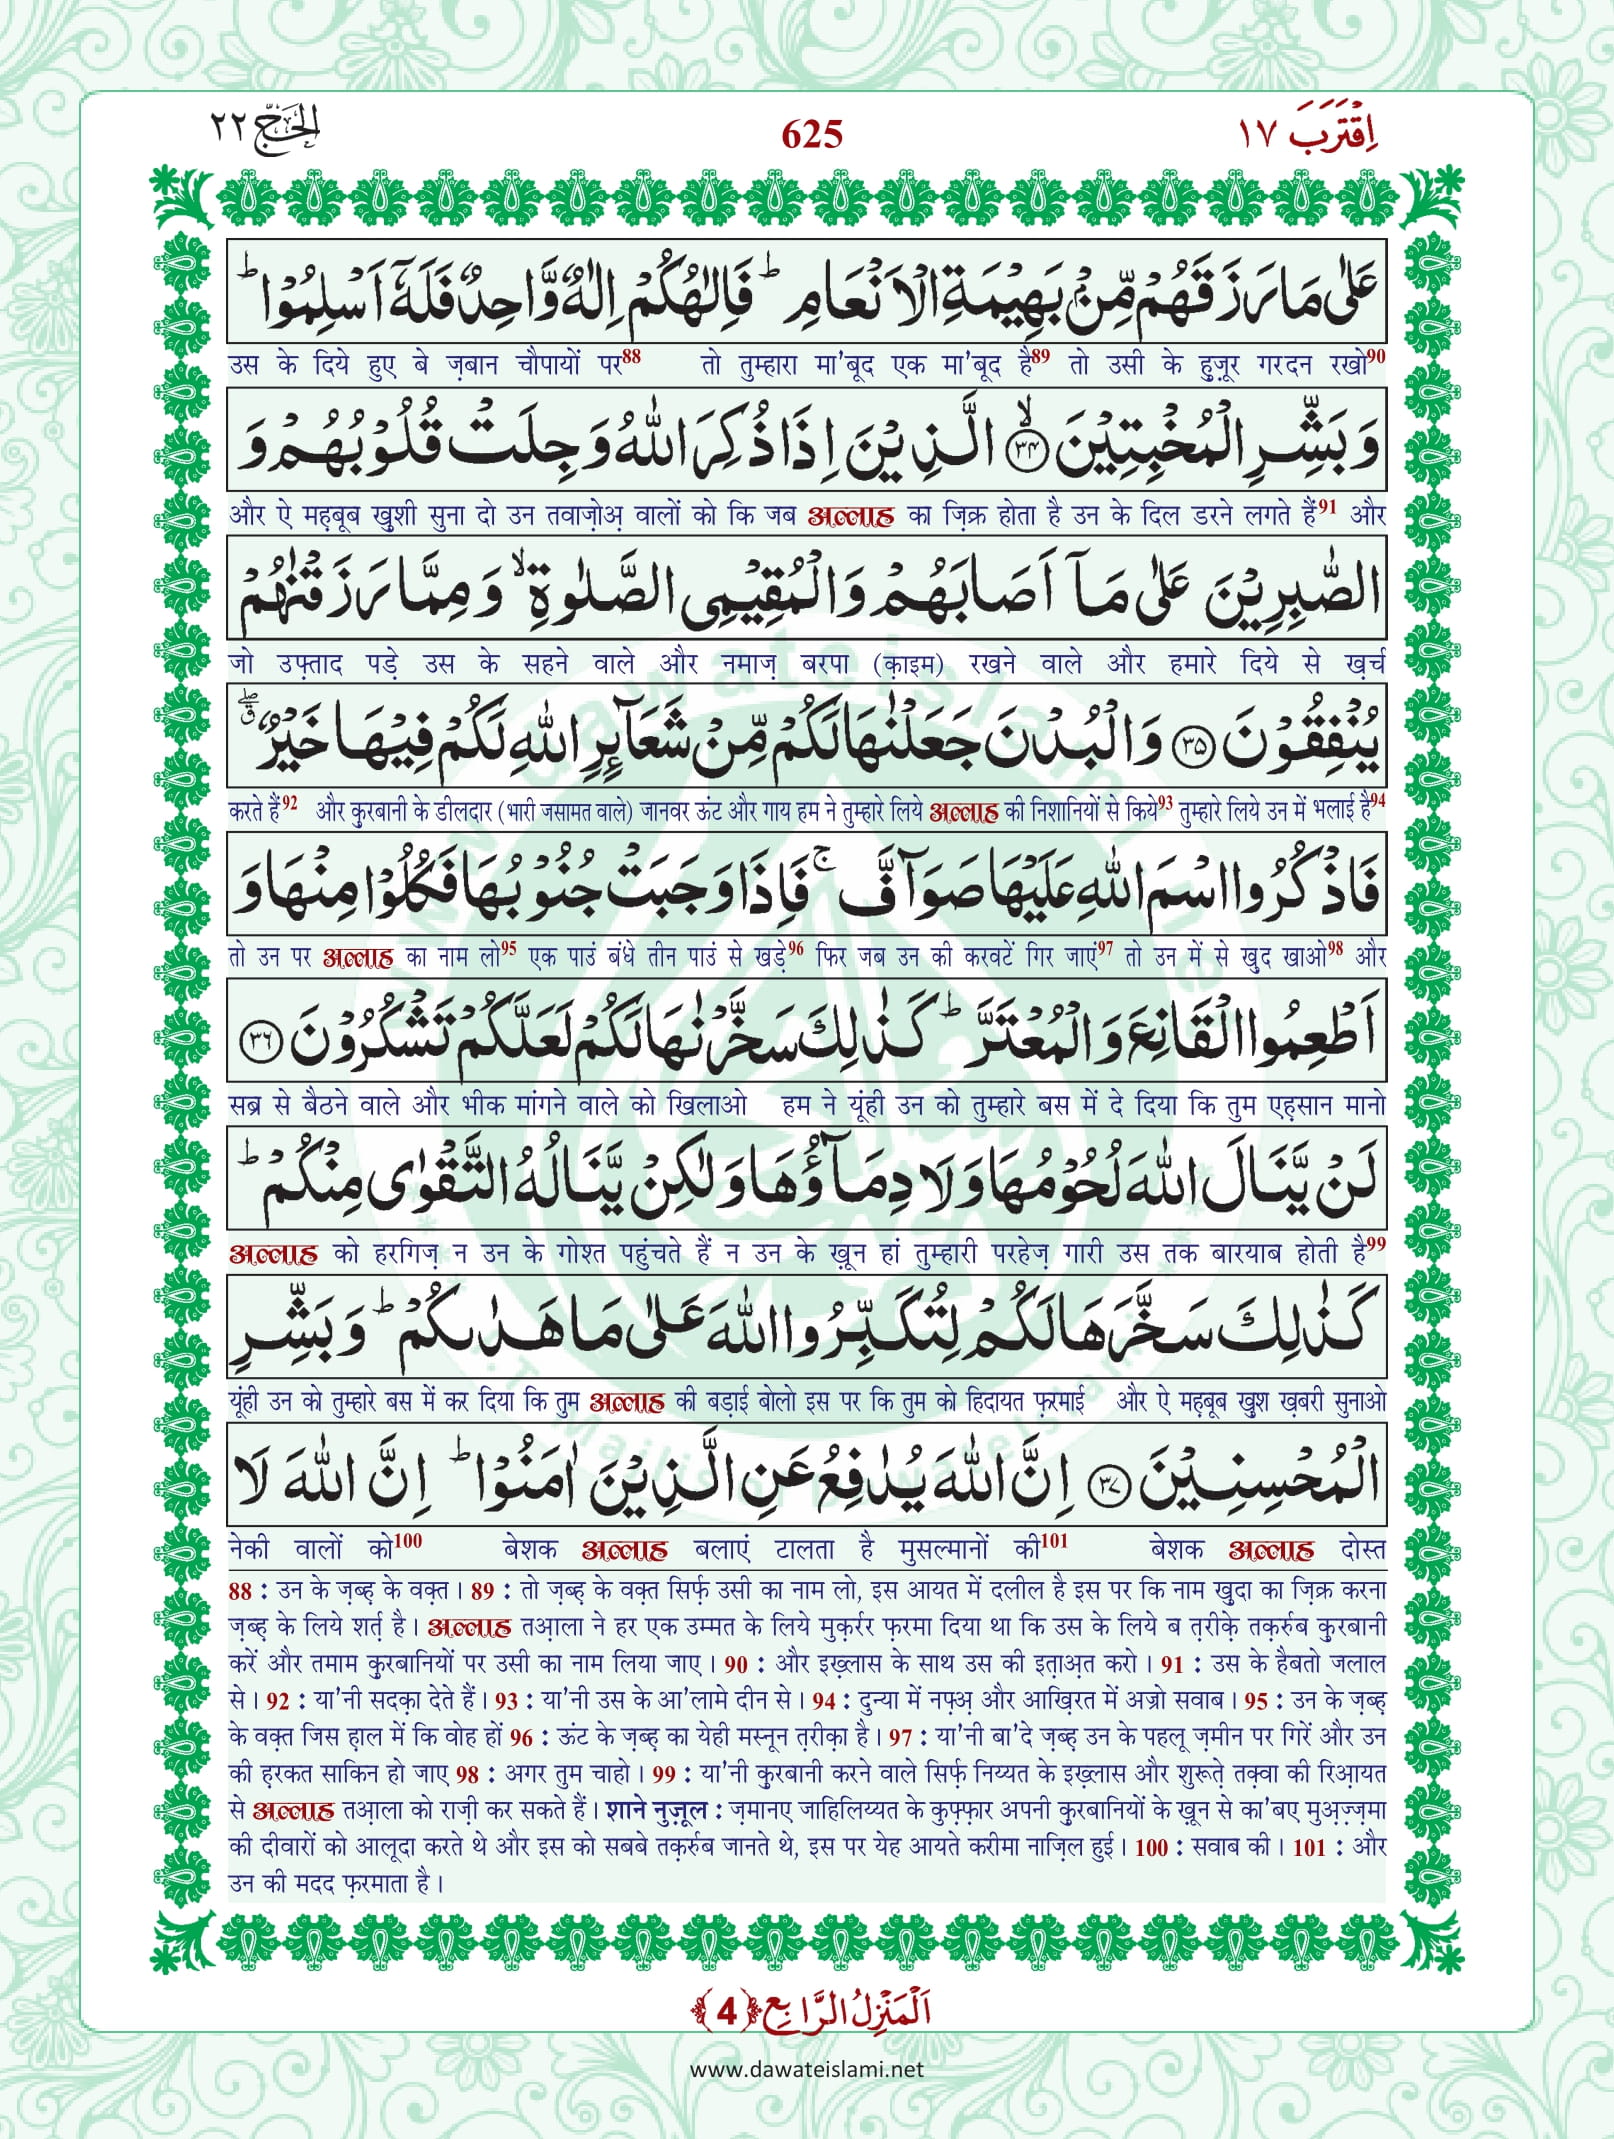 الحَجّ ٢٢
625
اِقْتَرَبَ ١٧
عَلٰى مَا رَزَقَهُمْ مِّنْۢ بَهِیْمَةِ الْاَنْعَامِؕ فَاِلٰهُكُمْ اِلٰهٌ وَّاحِدٌ فَلَهٗۤ اَسْلِمُوْاؕ
उस के दिये हुए बे ज़बान चौपायों पर88 तो तुम्हारा मा'बूद एक मा'बूद है89 तो उसी के हुज़ूर गरदन रखो90
وَ بَشِّرِ الْمُخْبِتِیْنَۙ(۳۴) الَّذِیْنَ اِذَا ذُكِرَ اللّٰهُ وَ جِلَتْ قُلُوْبُهُمْ وَ
और ऐ मह़बूब ख़ुशी सुना दो उन तवाज़ोअ़ वालों को कि जब अल्लाह का ज़िक्र होता है उन के दिल डरने लगते हैं91 और
الصّٰبِرِیْنَ عَلٰى مَاۤ اَصَابَهُمْ وَ الْمُقِیْمِی الصَّلٰوةِۙ وَ مِمَّا رَزَقْنٰهُمْ
जो उफ़्ताद पड़े उस के सहने वाले और नमाज़ बरपा (क़ाइम) रखने वाले और हमारे दिये से ख़र्च
یُنْفِقُوْنَ(۳۵) وَ الْبُدْنَ جَعَلْنٰهَا لَكُمْ مِّنْ شَعَآىٕرِ اللّٰهِ لَكُمْ فِیْهَا خَیْرٌ ﳓ
करते हैं92 और क़ुरबानी के डीलदार (भारी जसामत वाले) जानवर ऊंट और गाय हम ने तुम्हारे लिये अल्लाह की निशानियों से किये93 तुम्हारे लिये उन में भलाई है94
فَاذْكُرُوا اسْمَ اللّٰهِ عَلَیْهَا صَوَآفَّۚ فَاِذَا وَجَبَتْ جُنُوْبُهَا فَكُلُوْا مِنْهَا وَ
तो उन पर अल्लाह का नाम लो95 एक पाउं बंधे तीन पाउं से खड़े96 फिर जब उन की करवटें गिर जाएं97 तो उन में से ख़ुद खाओ98 और
اَطْعِمُوا الْقَانِعَ وَ الْمُعْتَرَّؕ كَذٰلِكَ سَخَّرْنٰهَا لَكُمْ لَعَلَّكُمْ تَشْكُرُوْنَ(۳۶)
सब्र से बैठने वाले और भीक मांगने वाले को खिलाओ हम ने यूंही उन को तुम्हारे बस में दे दिया कि तुम एह़सान मानो
لَنْ یَّنَالَ اللّٰهَ لُحُوْمُهَا وَ لَا دِمَآؤُهَا وَ لٰكِنْ یَّنَالُهُ التَّقْوٰى مِنْكُمْؕ
अल्लाह को हरगिज़ न उन के गोश्त पहुंचते हैं न उन के ख़ून हां तुम्हारी परहेज़ गारी उस तक बारयाब होती है99
كَذٰلِكَ سَخَّرَهَا لَكُمْ لِتُكَبِّرُوا اللّٰهَ عَلٰى مَا هَدٰىكُمْؕ وَ بَشِّرِ
यूंही उन को तुम्हारे बस में कर दिया कि तुम अल्लाह की बड़ाई बोलो इस पर कि तुम को हिदायत फ़रमाई और ऐ मह़बूब ख़ुश ख़बरी सुनाओ
الْمُحْسِنِیْنَ(۳۷) اِنَّ اللّٰهَ یُدٰفِعُ عَنِ الَّذِیْنَ اٰمَنُوْاؕ اِنَّ اللّٰهَ لَا
नेकी वालों को100 बेशक अल्लाह बलाएं टालता है मुसल्मानों की101 बेशक अल्लाह दोस्त
88 : उन के ज़ब्ह़ के वक़्त। 89 : तो ज़ब्ह़ के वक़्त सिर्फ़ उसी का नाम लो, इस आयत में दलील है इस पर कि नाम ख़ुदा का ज़िक्र करना
ज़ब्ह़ के लिये शर्त़ है। अल्लाह तआ़ला ने हर एक उम्मत के लिये मुक़र्रर फ़रमा दिया था कि उस के लिये ब त़रीक़े तक़र्रुब क़ुरबानी
करें और तमाम क़ुरबानियों पर उसी का नाम लिया जाए। 90 : और इख़्लास के साथ उस की इत़ाअ़त करो। 91 : उस के हैबतो जलाल
से। 92 : या'नी सदक़ा देते हैं। 93 : या'नी उस के आ'लामे दीन से। 94 : दुन्या में नफ़्अ़ और आख़िरत में अज्रो सवाब। 95 : उन के ज़ब्ह़
के वक़्त जिस ह़ाल में कि वोह हों 96 : ऊंट के ज़ब्ह़ का येही मस्नून त़रीक़ा है। 97 : या'नी बा'दे ज़ब्ह़ उन के पहलू ज़मीन पर गिरें और उन
की ह़रकत साकिन हो जाए 98 : अगर तुम चाहो। 99 : या'नी क़ुरबानी करने वाले सिर्फ़ निय्यत के इख़्लास और शुरूत़े तक़्वा की रिआ़यत
से अल्लाह तआ़ला को राज़ी कर सकते हैं। शाने नुज़ूल : ज़मानए जाहिलिय्यत के कुफ़्फ़ार अपनी क़ुरबानियों के ख़ून से का'बए मुअ़ज़्ज़मा
की दीवारों को आलूदा करते थे और इस को सबबे तक़र्रुब जानते थे, इस पर येह आयते करीमा नाज़िल हुई। 100 : सवाब की। 101 : और
उन की मदद फ़रमाता है।
اَلْمَنْزِلُ الرَّابِع ﴿4﴾
www.dawateislami.net